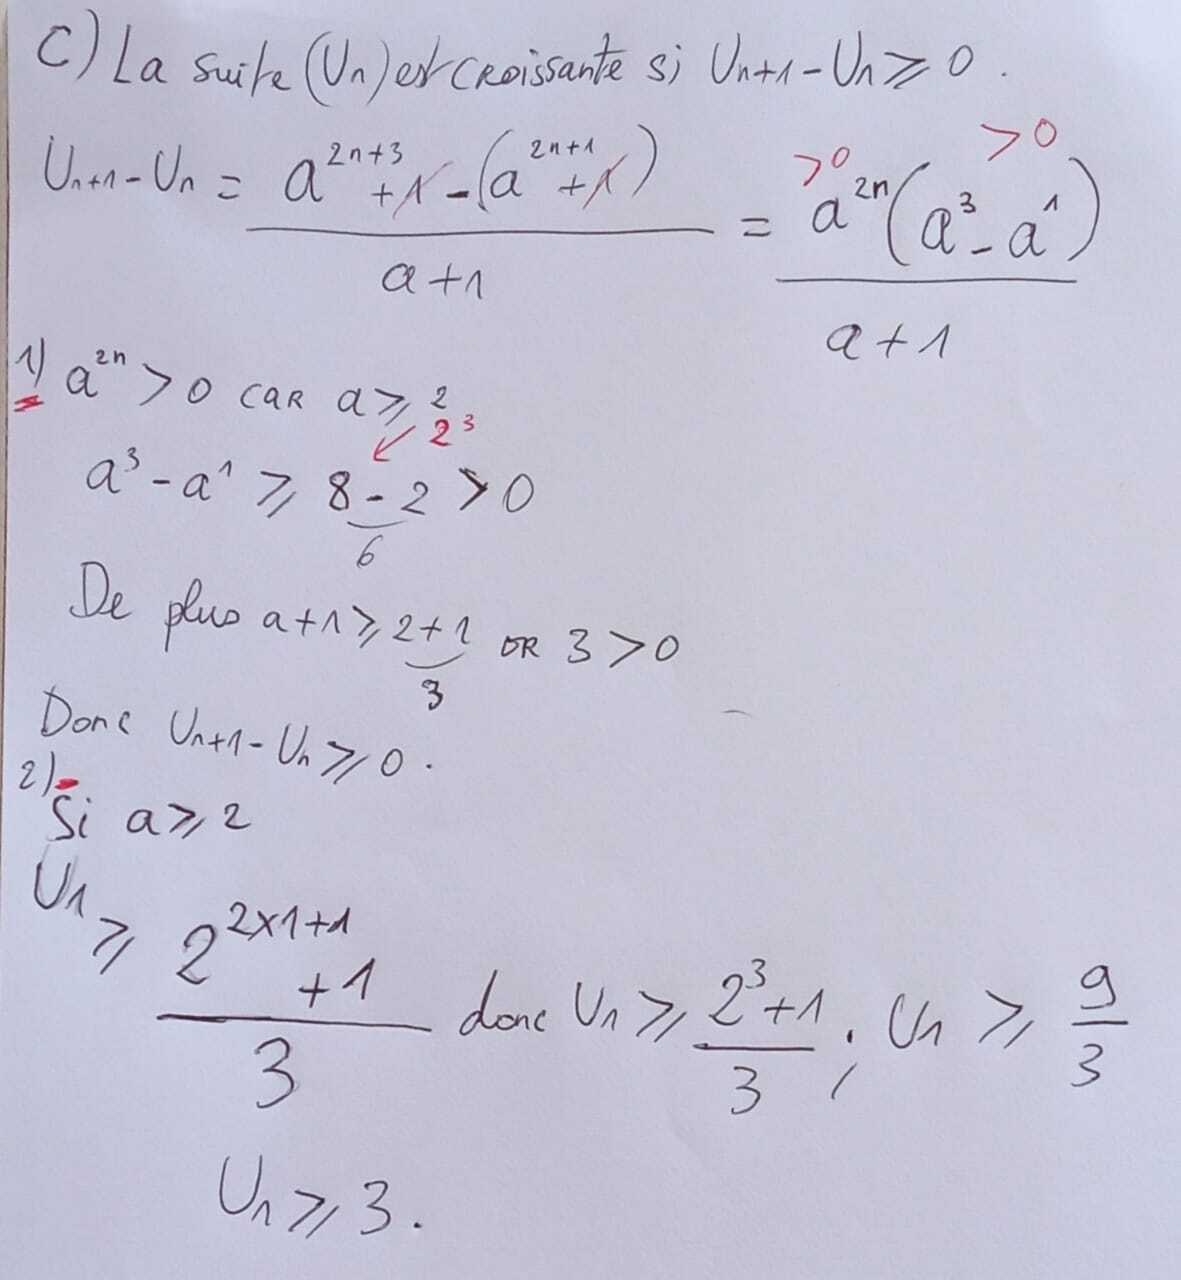 C) La suite (Un) est croissante si Un+1 - Un ⩾ 0.
Un+1 - Un = (a^{2n+3} + 1 - (a^{2n+1} + 1)) / (a+1) = a^{2n} (a^3 - a^1) / (a+1)
>0 >0
1) a^{2n} > 0 CAR a ⩾ 2
↙ 2^3
a^3 - a^1 ⩾ 8 - 2 > 0
6
De plus a+1 ⩾ 2+1 OR 3 > 0
3
Donc Un+1 - Un ⩾ 0.
2) Si a ⩾ 2
U1 ⩾ (2^{2×1+1} + 1) / 3 donc U1 ⩾ (2^3+1) / 3 ; U1 ⩾ 9/3
U1 ⩾ 3.